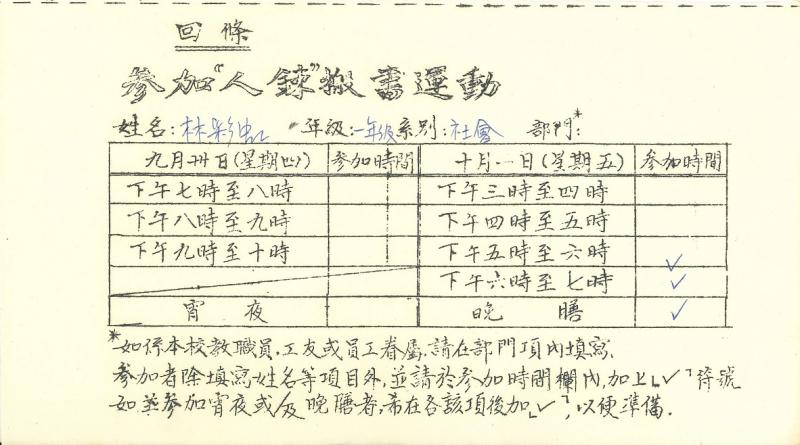 回條
參加“人鍊”搬書運動
姓名:林彩虹 年級:一年級 系別:社會 部門*:
九月卅日(星期四) 參加時間 十月一日(星期五) 參加時間
下午七時至八時 下午三時至四時
下午八時至九時 下午四時至五時
下午九時至十時 下午五時至六時 ✓
下午六時至七時 ✓
宵夜 晚膳 ✓
*如係本校教職員,工友或員工眷屬,請在部門項內填寫.
參加者除填寫姓名等項目外,並請於參加時間欄內,加上「✓」符號
如並參加宵夜或/及晚膳者,希在各該項後加「✓」,以便準備.